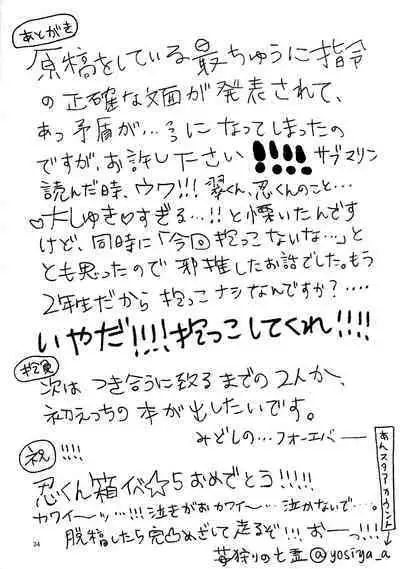 あとがき
原稿をしている最ちゅうに指令
の正確な文面が発表されて、
あっ矛盾が…になってしまったの
ですが、お許し下さい!!!! サブマリン
読んだ時、ウワ!!! 翠くん、忍くんのこと…
♡大しゅき♡すぎる…!!と慄いたんです
けど、同時に「今回抱っこないな…」と
とも思ったので邪推したお話でした。もう
2年生だから抱っこナシなんですか?‥‥
いやだ!!!!抱っこしてくれ!!!!
抱負
次は つき合うに致るまでの2人か、
初えっちの本が出したいです。
みどしの…フォーエバー
祝!!!!
忍くん箱イベ☆5おめでとう!!!!!
カワイ〜ッ…!!!泣きがおカワイ〜…泣かないで…。
脱稿したら完凸めざして走るぞ!!!おーっ!!!
あんスタアカウント
24
苺狩りの七霊@yosiya_a